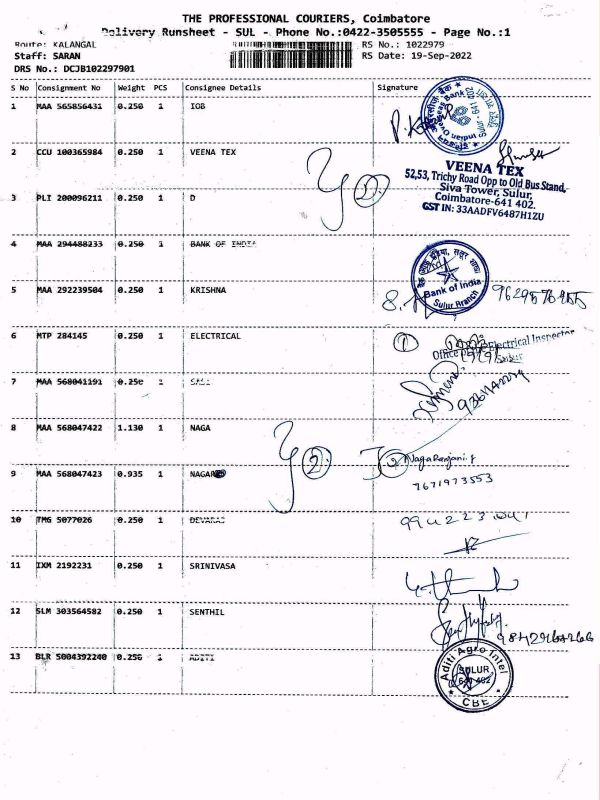 THE PROFESSIONAL COURIERS, Coimbatore
Delivery Runsheet - SUL - Phone No.:0422-3505555 - Page No.:1
Route: KALANGAL RS No.: 1022979
Staff: SARAN RS Date: 19-Sep-2022
DRS No.: DCJB102297901
S No Consignment No Weight PCS Consignee Details Signature
1 MAA 565856431 0.250 1 IOB
2 CCU 100365984 0.250 1 VEENA TEX
VEENA TEX
52,53, Trichy Road Opp to Old Bus Stand,
Siva Tower, Sulur,
Coimbatore-641 402.
GST IN: 33AADFV6487H1ZU
3 PLI 200096211 0.250 1 D
4 MAA 294488233 0.250 1 BANK OF INDIA
Bank of India
Sulur Branch
5 MAA 292239504 0.250 1 KRISHNA
6 MTP 284145 0.250 1 ELECTRICAL
1
Electrical Inspector
Sulur
7 MAA 568041191 0.250 1
8 MAA 568047422 1.130 1 NAGA
2
Naga Ranjani.
7671973553
9 MAA 568047423 0.935 1 NAGAR
10 TMG 5077026 0.250 1 DEVARAJ
11 IXM 2192231 0.250 1 SRINIVASA
12 SLM 303564582 0.250 1 SENTHIL
13 BLR 5004392240 0.250 1 ADITI
Aditi Agro Intel
SULUR
641 402
CBE